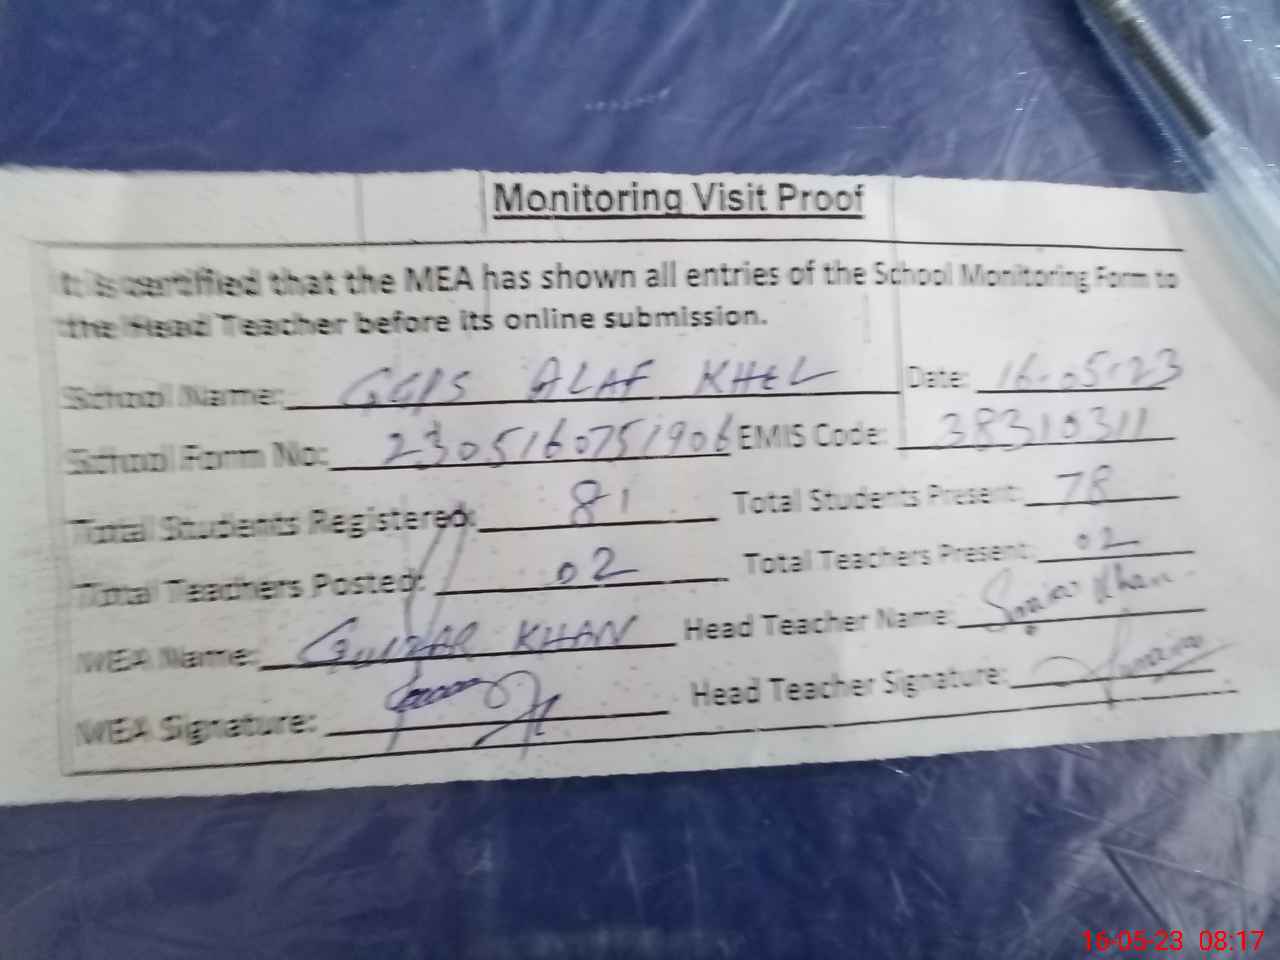 Monitoring Visit Proof
It is certified that the MEA has shown all entries of the School Monitoring Form to
the Head Teacher before its online submission.
School Name: GGPS ALAF KHEL Date: 16-05-23
School Form No: 2305160751906 EMIS Code: 38310311
Total Students Registered: 81 Total Students Present: 78
Total Teachers Posted: 02 Total Teachers Present: 02
MEA Name: GULZAR KHAN Head Teacher Name: Khan
MEA Signature: Head Teacher Signature:
16-05-23 08:17